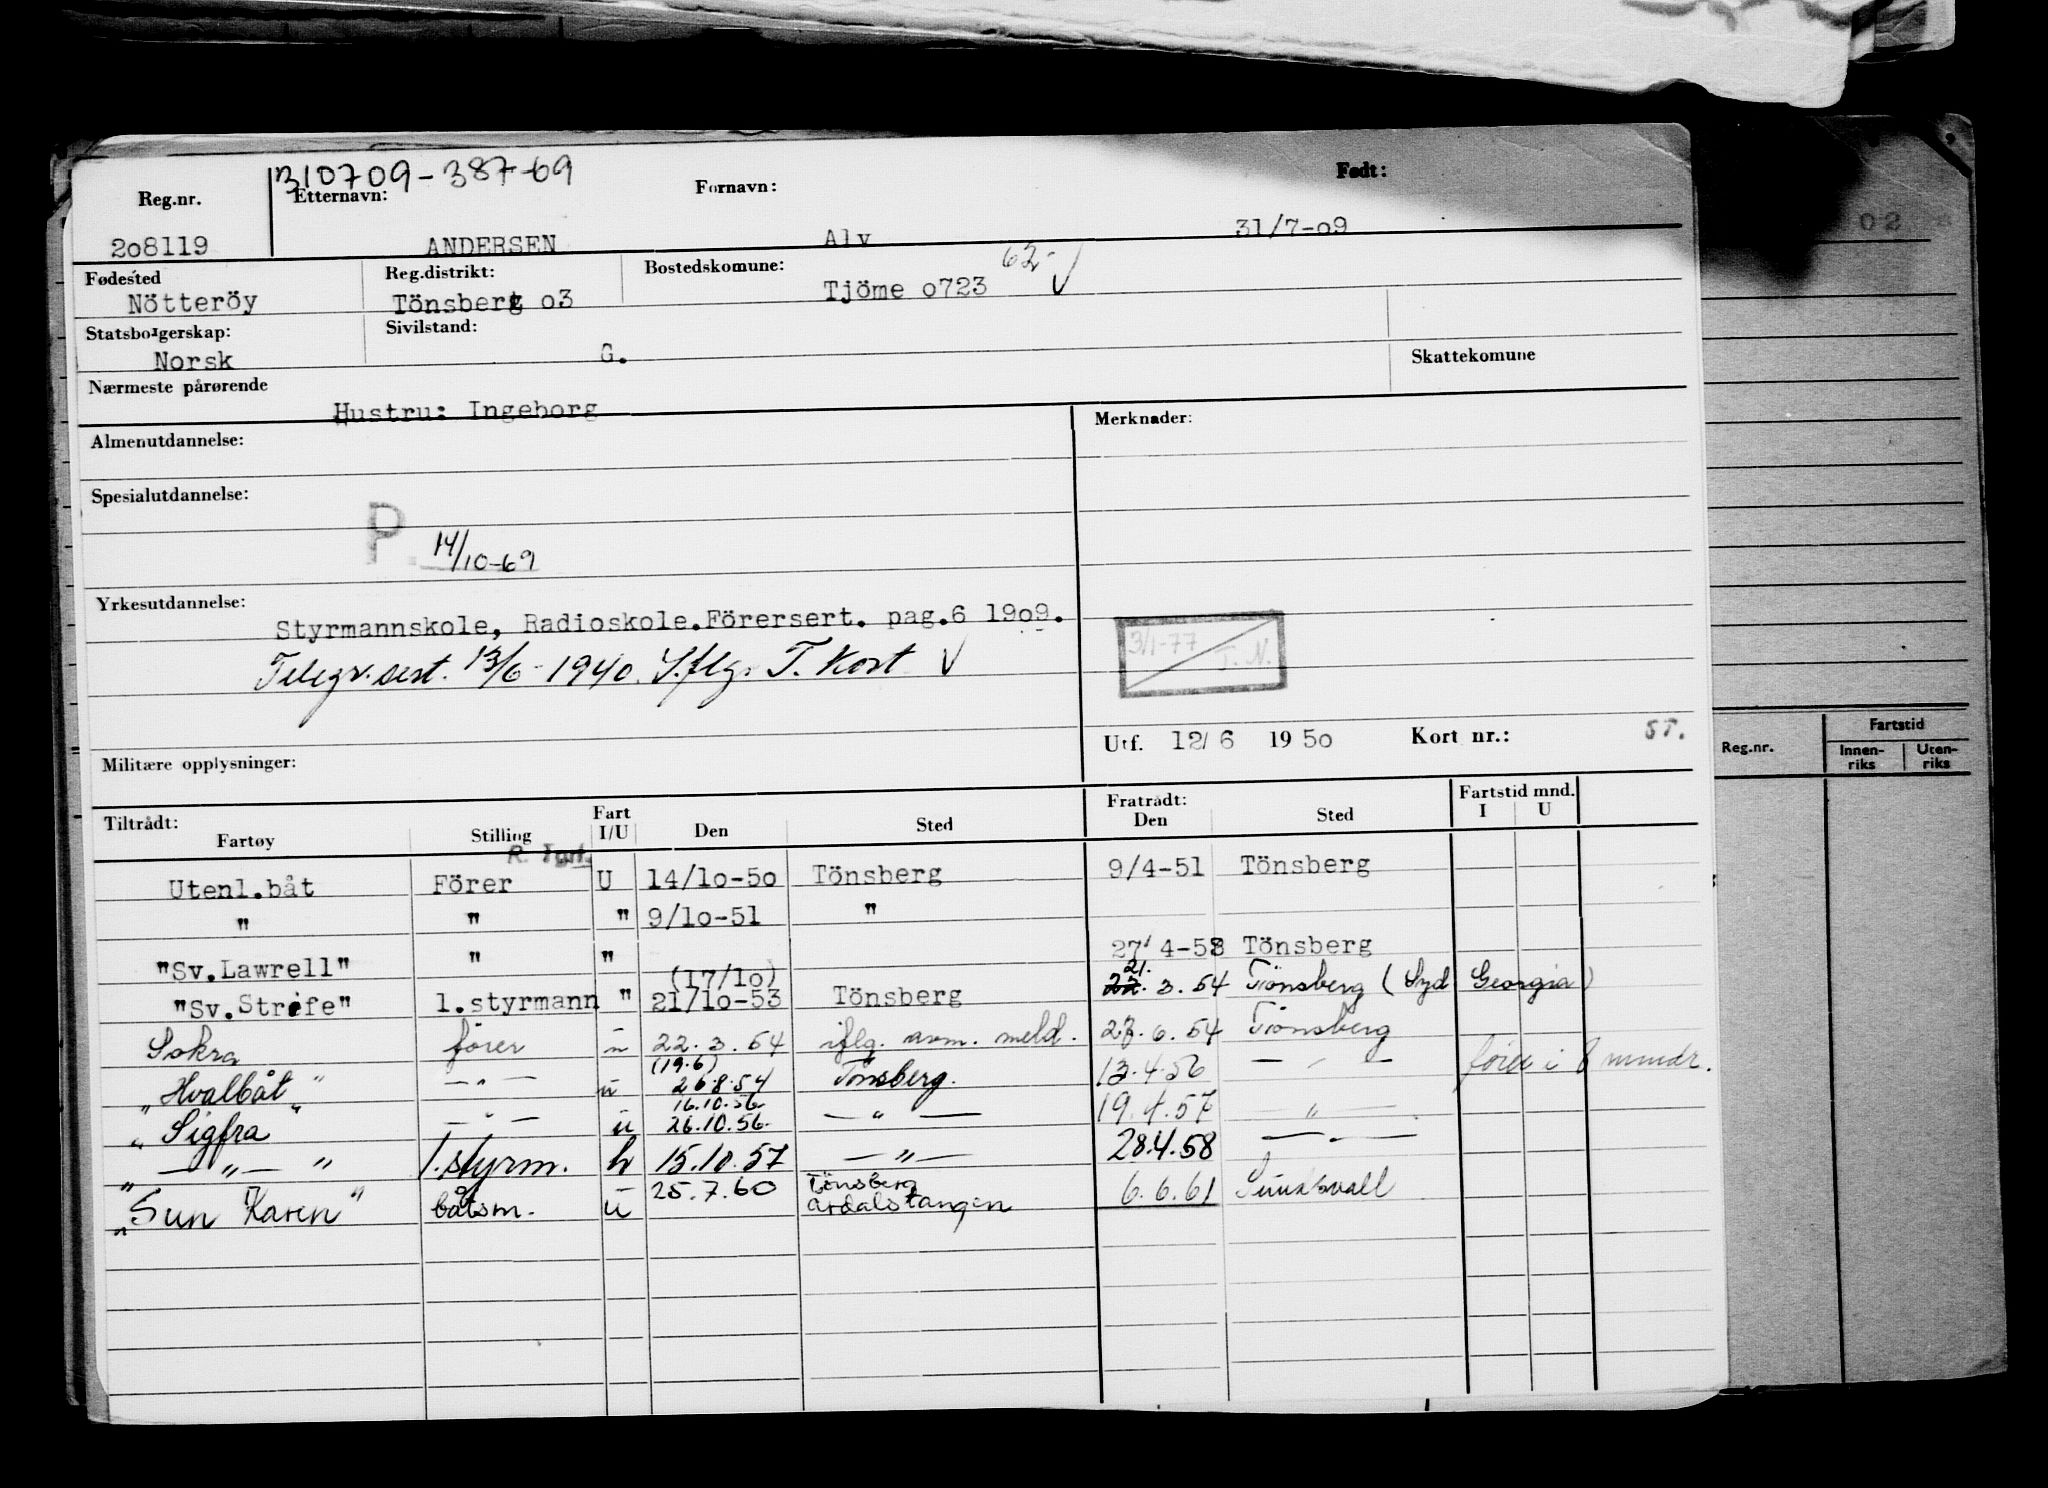 310709-387-69
Reg.nr. Etternavn: Fornavn: Født:
208119 ANDERSEN Alv 31/7-o9
Fødested Reg.distrikt: Bostedskomune: 62-
Nötteröy Tönsberg o3 Tjöme o723 √
Statsborgerskap: Sivilstand:
Norsk G. Skattekomune
Nærmeste pårørende
Hustru: Ingeborg
Almenutdannelse: Merknader:
Spesialutdannelse:
P. 14/10-69
Yrkesutdannelse:
Styrmannskole, Radioskole.Förersert. pag.6 19o9.
Telegr.sert. 13/6-1940. I.flg. T. Kort √
3/1-77 T. N.
Utf. 12/6 1950 Kort nr.: ST.
Militære opplysninger:
Tiltrådt: Fart Fratrådt: Fartstid mnd.
Fartøy Stilling I/U Den Sted Den Sted I U
Utenl.båt Förer U 14/1o-5o Tönsberg 9/4-51 Tönsberg
" " " 9/1o-51 "
"Sv.Lawrell" " " 27/4-53 Tönsberg
(17/1o) 21.
"Sv.Strife" 1.styrmann " 21/1o-53 Tönsberg 22.3.54 Tönsberg (Syd Georgia)
Sokra förer u 22.3.54 iflg. avm. meld. 27.6.54 Tönsberg
(19.6)
"Hvalbåt" -"- u 26.8.54 Tönsberg. 13.4.56 -"- förer i 8 mndr.
16.10.56
"Sigfra -"- u 26.10.56. -"- 19.4.57 -"-
" -"- " 1.styrm. h 15.10.57 -"- 28.4.58 -"-
Tönsberg
"Sun Karen" båtsm. u 25.7.60 Årdalstangen 6.6.61 Sundsvall
02
Reg.nr. Fartstid
Innenriks Utenriks